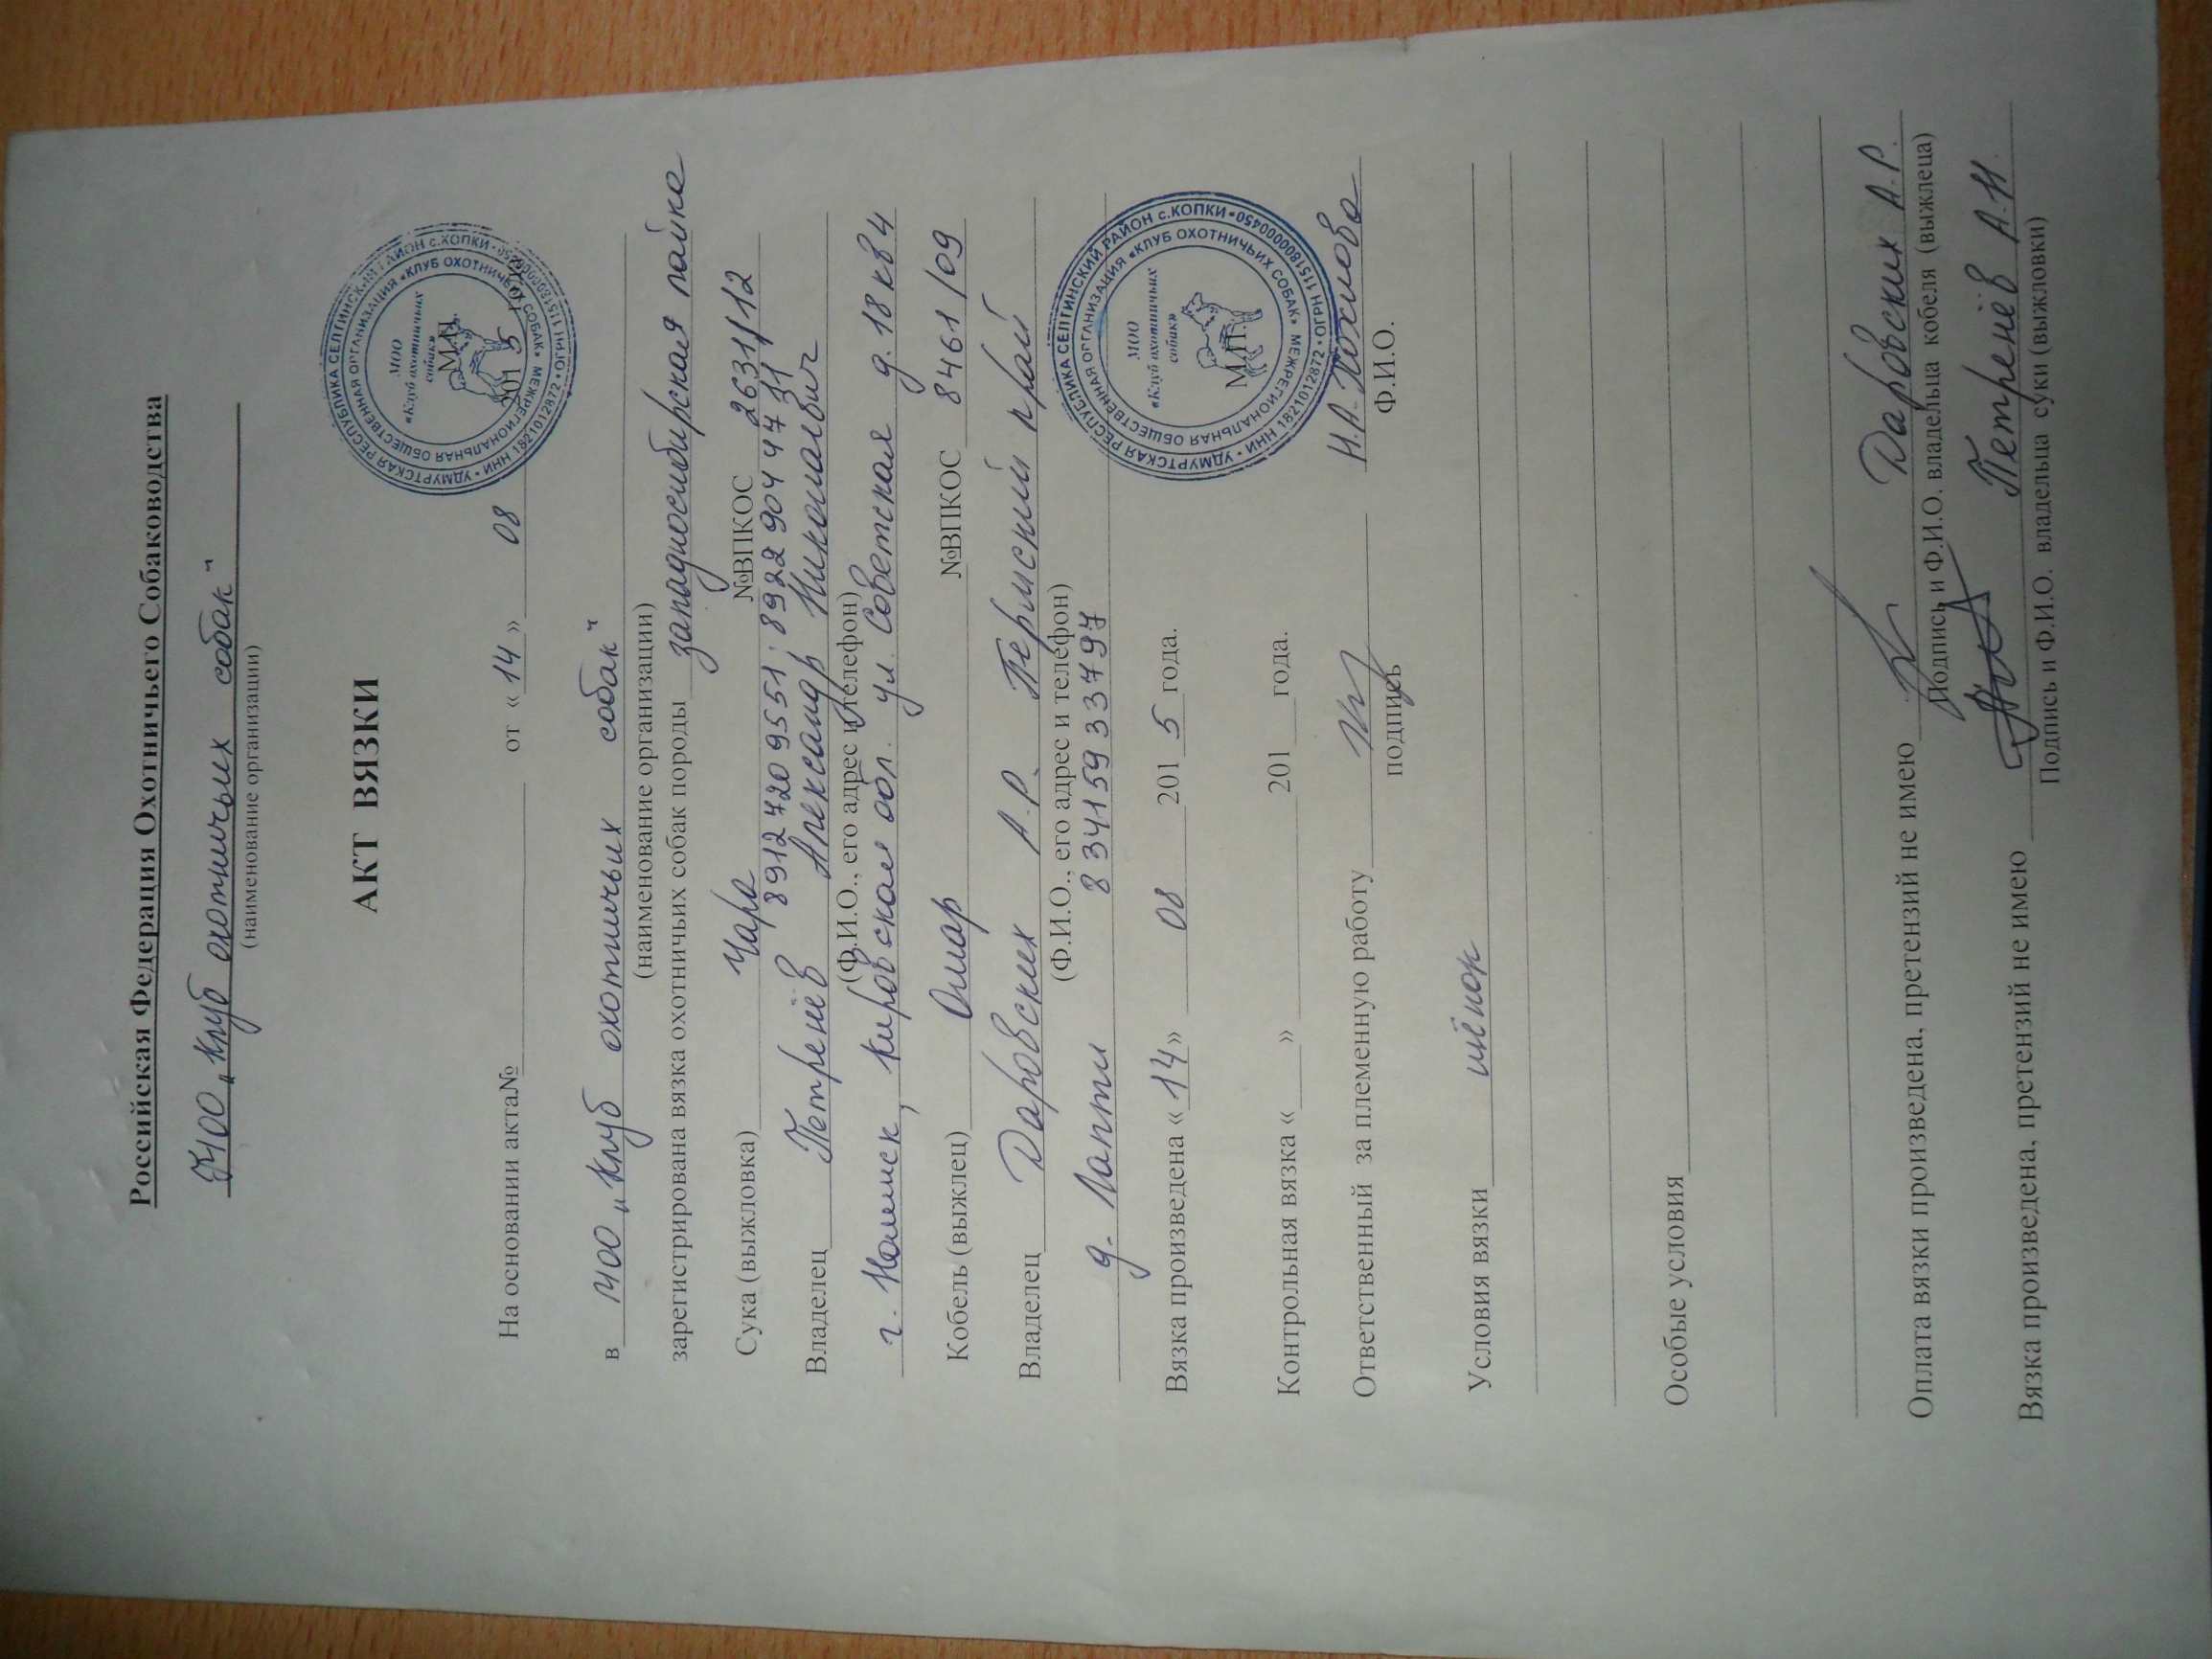 Российская Федерация Охотничьего Собаководства
МОО „Клуб охотничьих собак"
(наименование организации)
АКТ ВЯЗКИ
УДМУРТСКАЯ РЕСПУБЛИКА СЕЛТИНСКИЙ РАЙОН с.КОПКИ • ИНН 1821012872 • ОГРН 1151800000450
МЕЖРЕГИОНАЛЬНАЯ ОБЩЕСТВЕННАЯ ОРГАНИЗАЦИЯ «КЛУБ ОХОТНИЧЬИХ СОБАК»
МОО
«Клуб охотничьих
собак»
М.П.
На основании акта№ от «14» 08 2015 года
в МОО „Клуб охотничьих собак"
(наименование организации)
зарегистрирована вязка охотничьих собак породы западносибирская лайка
Сука (выжловка) Чара №ВПКОС 2631/12
89127209551; 89229044731
Владелец Петренёв Александр Николаевич
(Ф.И.О., его адрес и телефон)
г. Нолинск, Кировская обл. ул. Советская д.18 кв4
Кобель (выжлец) №ВПКОС 8461/09
Владелец Даровских А.Р. Пермский край
(Ф.И.О., его адрес и телефон)
д. Лапти 83415933797
Вязка произведена «14» 08 2015 года.
УДМУРТСКАЯ РЕСПУБЛИКА СЕЛТИНСКИЙ РАЙОН с.КОПКИ • ИНН 1821012872 • ОГРН 1151800000450
МЕЖРЕГИОНАЛЬНАЯ ОБЩЕСТВЕННАЯ ОРГАНИЗАЦИЯ «КЛУБ ОХОТНИЧЬИХ СОБАК»
МОО
«Клуб охотничьих
собак»
М.П.
Контрольная вязка « » 201 года.
Ответственный за племенную работу Н.А.
подпись Ф.И.О.
Условия вязки щенок
Особые условия
Оплата вязки произведена, претензий не имею Даровских А.Р.
Подпись и Ф.И.О. владельца кобеля (выжлеца)
Вязка произведена, претензий не имею Петренёв А.Н.
Подпись и Ф.И.О. владельца суки (выжловки)